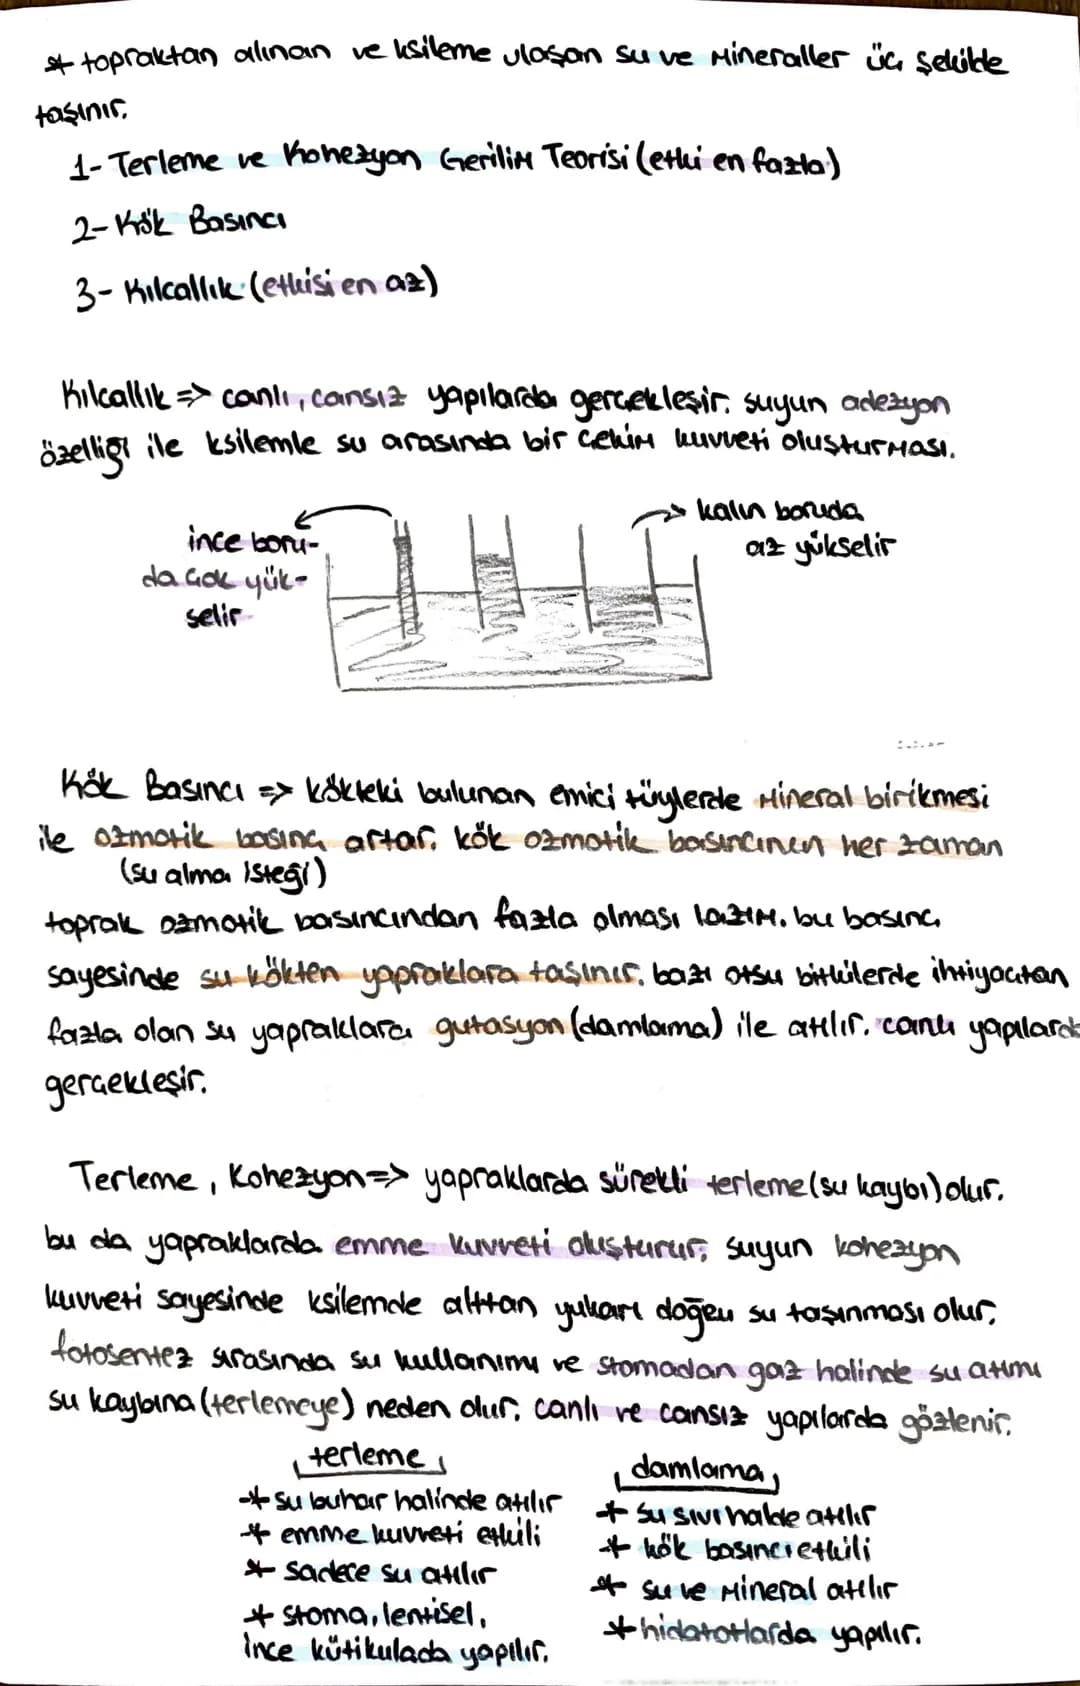 * topraktan alınan ve ksileme ulaşan su ve Mineraller üç şekilde
taşınır.
1- Terleme ve Kohezyon Gerilim Teorisi (etki en fazla)
2- Kök Basıncı
3- Kılcallık (etkisi en az)
Kılcallık => canlı, cansız yapılarda gerçekleşir. suyun adezyon
özelliği ile ksilemle su arasında bir çekim kuvveti oluşturması.
ince boru-
da çok yük-
selir
kalın boruda
az yükselir
Kök Basıncı => kökteki bulunan emici tüylerde mineral birikmesi
ile ozmotik basınç artar. kök ozmotik basıncının her zaman
(su alma isteği)
toprak ozmotik basıncından fazla olması lazım. bu basınç
sayesinde su kökten yapraklara taşınır. bazı otsu bitkilerde ihtiyaçtan
fazla olan su yapraklara gutasyon (damlama) ile atılır. canlı yapılarda
gerçekleşir.
Terleme, Kohezyon => yapraklarda sürekli terleme (su kaybı) olur.
bu da yapraklarda emme kuvveti oluşturur. suyun kohezyon
kuvveti sayesinde ksilemde alttan yukarı doğru su taşınması olur.
fotosentez sırasında su kullanımı ve stomadan gaz halinde su atımı
su kaybına (terlemeye) neden olur. canlı ve cansız yapılarda gözlenir.
terleme
* su buhar halinde atılır
* emme kuvveti etkili
* sadece su atılır
* stoma, lentisel,
ince kütikulada yapılır.
damlama
* su sıvı halde atılır
* kök basıncı etkili
* su ve mineral atılır
* hidatotlarda yapılır.